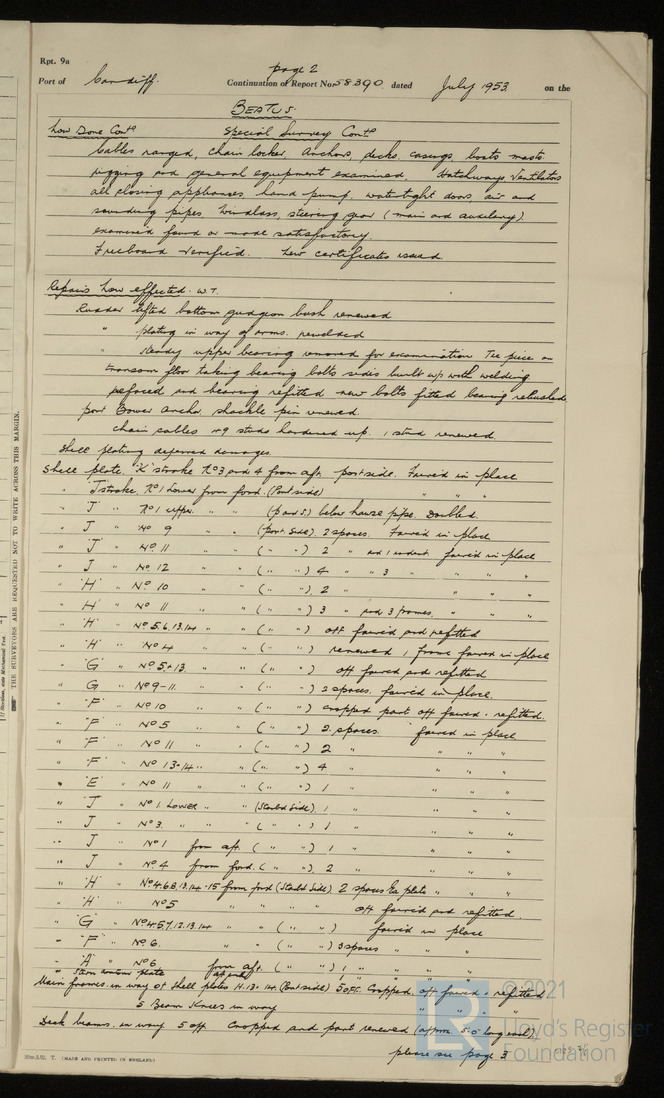 Rpt. 9a
page 2
Port of Cardiff. Continuation of Report No. 58390 dated July 1953 on the
BEATUS
How Done Contd Special Survey Contd
Cables ranged, chain locker, Anchors, decks, casings, boats masts
rigging and general equipment examined. Hatchways, Ventilators
all closing appliances, hand pump, watertight doors, air and
sounding pipes, windlass, steering gear (main and auxiliary)
examined found or made satisfactory.
Freeboard verified. New certificates issued
Repairs how effected. W.T.
Rudder lifted bottom gudgeon bush renewed
" plating in way of arms. rewelded
" steady upper bearing removed for examination Tee piece on
transom floor taking bearing bolts sides built up with welding
refaced and bearing refitted new bolts fitted bearing rebushed
port Bower anchor shackle pin renewed.
Chain cables 49 studs hardened up. 1 stud renewed.
Shell plating deferred damages.
Shell plate 'K' strake No 3 and 4 from aft. port side. Faired in place
" J strake. No 1 Lower from ford. (Port side) " " "
" 'J' " No 1 upper. " " (P and S.) below hause pipe. Doubled.
" J " No 9 " " (port. Side). 2 spaces. Faired in place
" 'J' " No. 11 " " ( " " ) 2 " and 1 indent faired in place
" J " No. 12 " " ( " " ) 4 " " 3 " " " "
" 'H' " No 10 " " ( " " ) 2 " " " "
" H " No 11 " " ( " " ) 3 " and 3 frames, " " "
" 'H' " No 5.6.13.14 " " ( " " ) off faired and refitted
" 'H' " No 4 " " ( " " ) renewed 1 frame faired in place
" 'G' " No 5+13 " " ( " " ) off faired and refitted
" G " No 9-11. " " ( " " ) 2 spaces. faired in place.
" 'F' " No 10 " " ( " " ) cropped part off faired & refitted.
" 'F' " No 5 " " ( " " ) 2. spaces. faired in place
" 'F' " No 11 " " ( " " ) 2 " " " "
" 'F' " No 13-14 " " ( " " ) 4 " " " "
" 'E' " No 11 " " ( " " ) 1 " " " "
" J " No 1 Lower " " (Starbd Side). 1 " " " "
" J " No 3. " " ( " " ) 1 " " " "
" J " No 1 from aft. ( " " ) 1 " " " "
" J " No 4 from ford. ( " " ). 2 " " " "
" 'H' " No 4.6.8.13.14.15 from ford (Starbd Side) 2 spaces Ea plate " " "
" 'H' " No 5 " " " " off faired and refitted
" 'G' " No 4.5.7.12.13.14 " " ( " " ) faired in place
" 'F' " No 6. " " ( " " ) 3 spaces " " "
" 'A' " No 6 from aft. ( " " ) 1 " " " "
" Stern bottom plate
Main frames. in way of Shell plates H.13.14 (Port side) 5 OFF. Cropped, off faired & refitted
5 Beam Knees in way " " " "
Deck beams. in way 5 off Cropped and part renewed (approx. 5'-0" long)
please see page 3
THE SURVEYORS ARE REQUESTED NOT TO WRITE ACROSS THIS MARGIN.
T. (MADE AND PRINTED IN ENGLAND)
© 2021
Lloyd's Register
Foundation